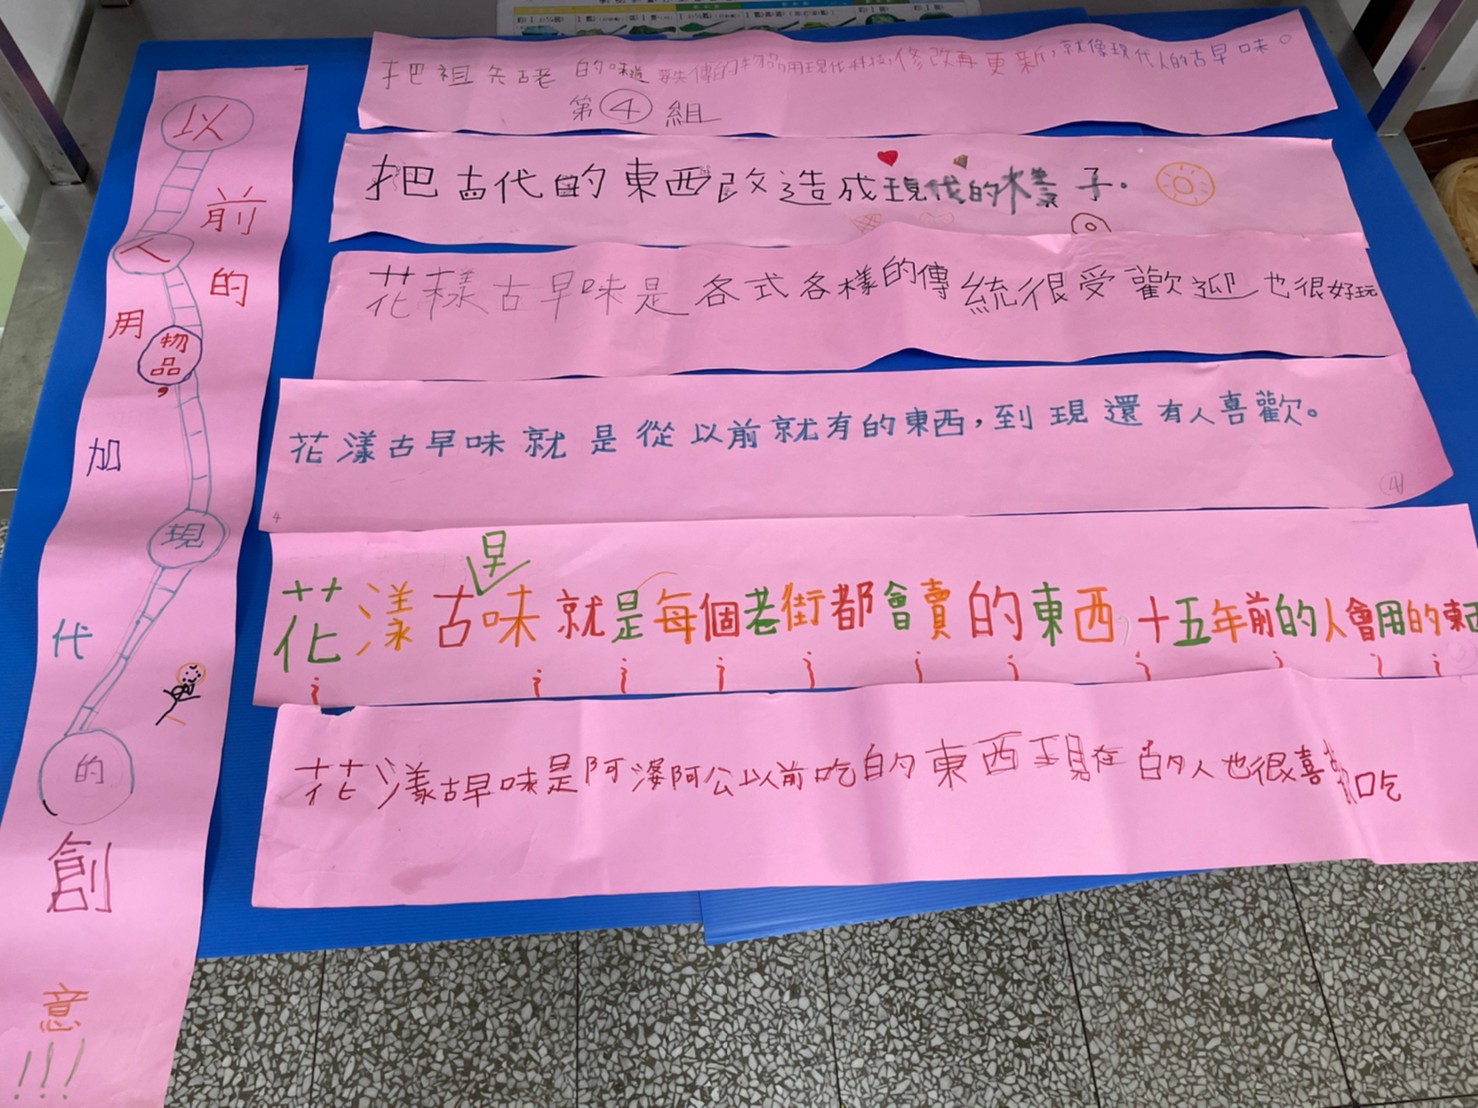 以前的人用物品,加現代的創意!!!
把祖先古老的味道 失傳的 用現代科技,修改再更新,就像現代人的古早味。
第④組
把古代的東西改造成現代的樣子.
花樣古早味是各式各樣的傳統很受歡迎也很好玩
花漾古早味就是從以前就有的東西,到現還有人喜歡。
4
4
花漾古早味就是每個老街都會賣的東西,十五年前的人會用的東西
花漾古早味是阿婆阿公以前吃的東西現在的人也很喜歡吃